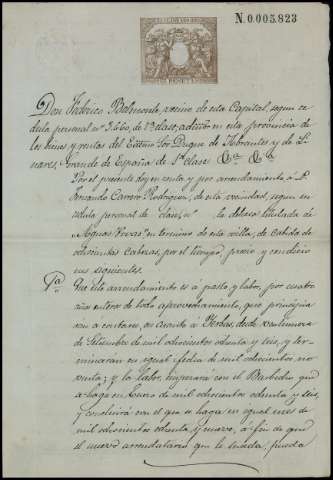 N. 0.005.823
Don Federico Belmonte, vecino de esta Capital, segun ce-
dula personal nº 3,660, de 1ª clase, admor en esta provincia de
los bienes y rentas del Excmo Sor Duque de Abrantes y de Li-
nares, Grande de España de 1ª clase
Por el presente doy en renta y por arrendamiento á D.
Fernando Carrero Rodriguez, de esta vecindad, segun su
cedula personal de clase, nº la dehesa titulada de
Aguas Vivas en termino de esta villa, de cabida de
ochocientas cabezas, por el tiempo, precio y condicio-
nes siguientes.
1ª Que este arrendamiento es á pasto y labor, por cuatro
años enteros de todo aprovechamiento, que principia-
ran a contarse, en cuanto a Yerbas, desde veintinueve
de Setiembre de mil ochocientos ochenta y seis, y ter-
minaran en igual fecha de mil ochocientos no-
venta; y la labor, empezará con el Barbecho que
se haga en Enero de mil ochocientos ochenta y seis,
y concluirá con el que se haga en igual mes de
mil ochocientos ochenta y nueve, á fin de que
el nuevo arrendatario que le suceda, pueda